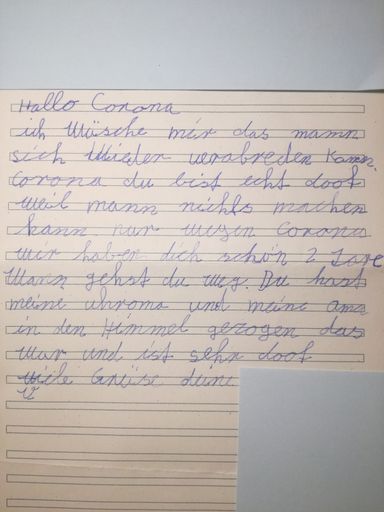 Hallo Corona
ich Wüsche mir das mann
sich Wieder verabreden Kann.
Corona du bist echt doof
weil mann nichts machen
kann nur wegen Corona
wir haben dich schon 2 Jare
Wann gehst du weg. Du hast
meine uhroma und meine Oma
in den Himmel gezogen das
war und ist sehr doof
viele Grüise deine
V